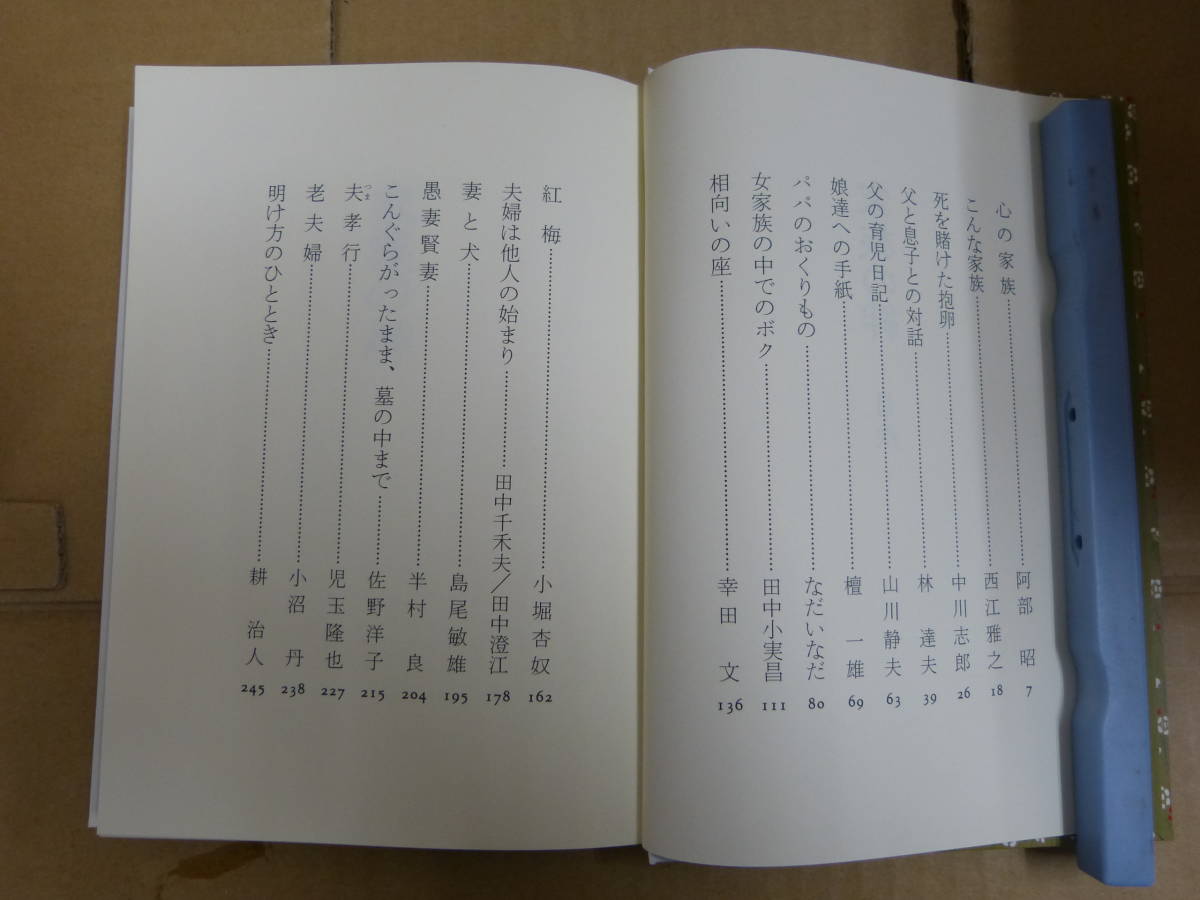 心の家族……阿部 昭 7
こんな家族……西江雅之 18
死を賭けた抱卵……中川志郎 26
父と息子との対話……林 達夫 39
父の育児日記……山川静夫 63
娘達への手紙……檀 一雄 69
パパのおくりもの……なだいなだ 80
女家族の中でのボク……田中小実昌 111
相向いの座……幸田 文 136
紅梅……小堀杏奴 162
夫婦は他人の始まり……田中千禾夫／田中澄江 178
妻と犬……島尾敏雄 195
愚妻賢妻……半村 良 204
こんぐらがったまま、墓の中まで……佐野洋子 215
夫つま孝行……児玉隆也 227
老夫婦……小沼 丹 238
明け方のひととき……耕 治人 245